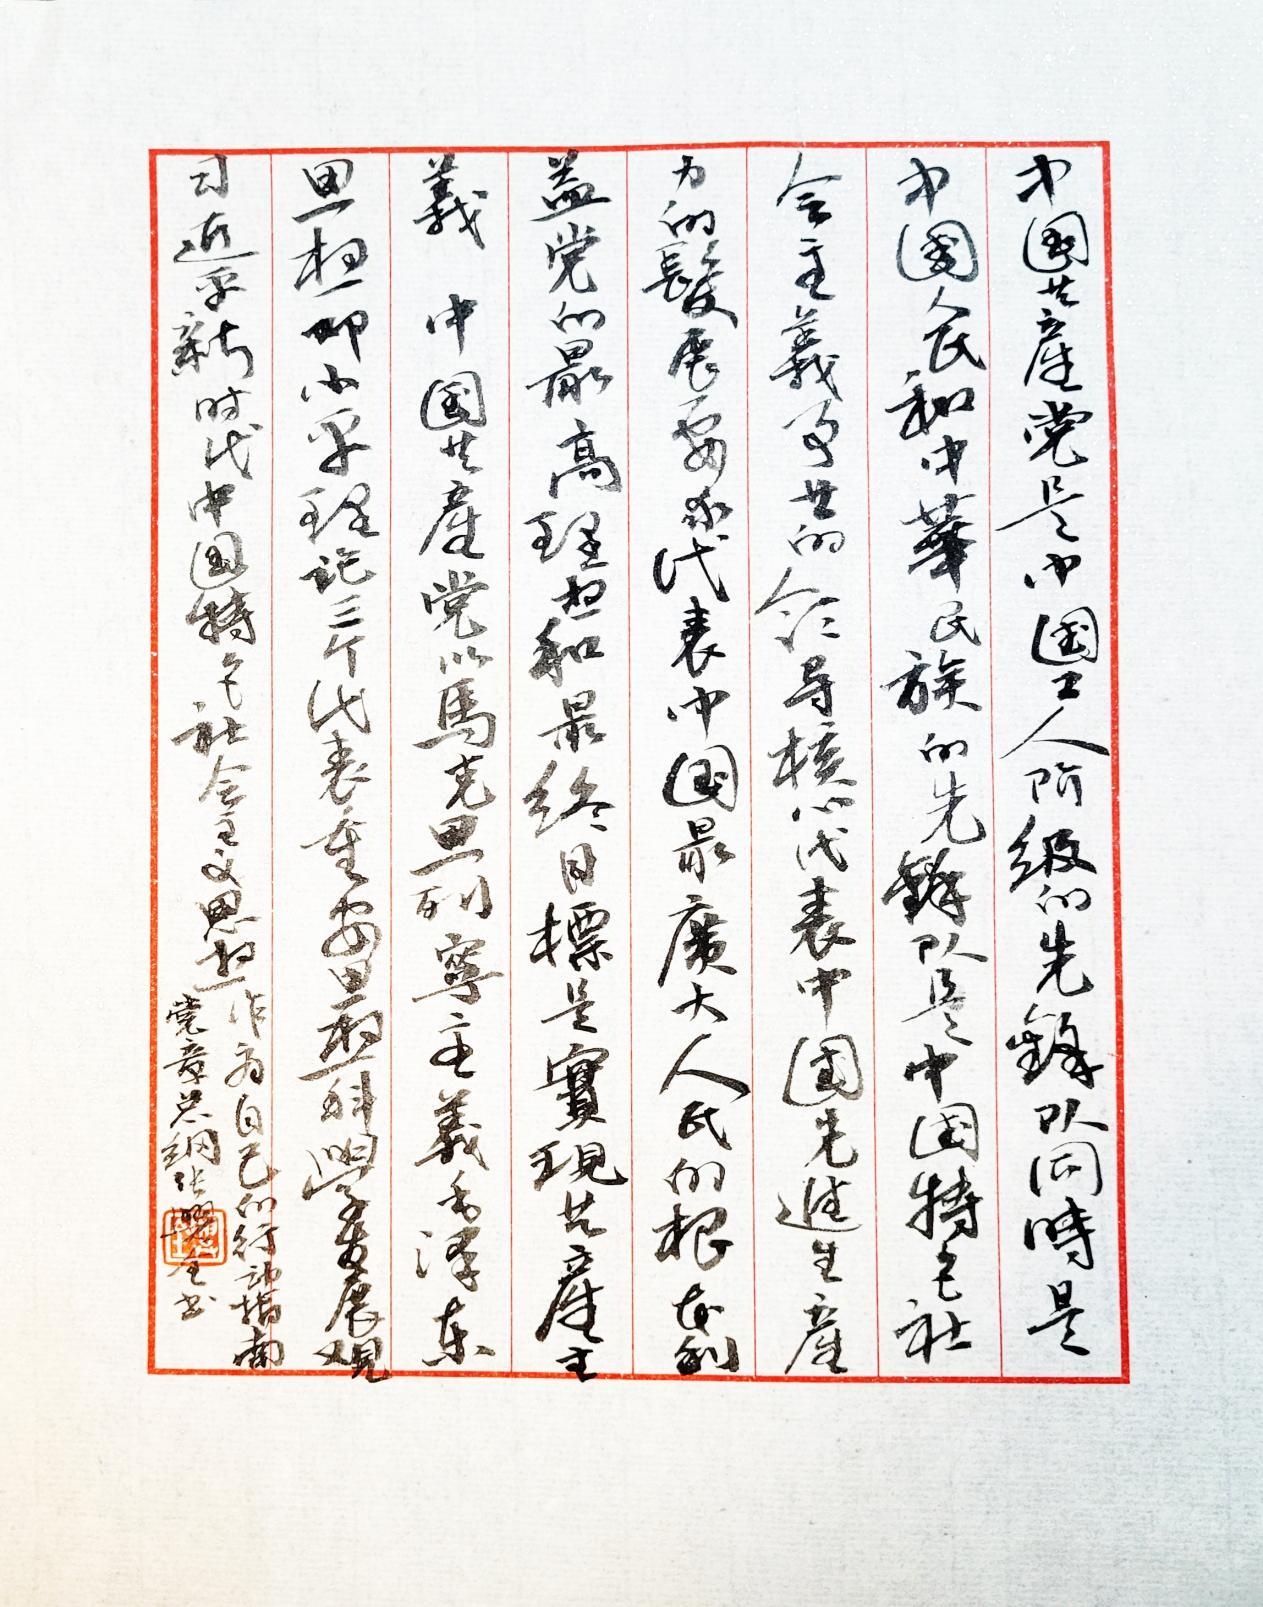 中国共產党是中国工人阶级的先鋒队同時是
中国人民和中華民族的先鋒队是中国特色社
会主義事业的领导核心代表中国先進生產
力的髮展要求代表中国最廣大人民的根本利
益党的最高理想和最终目標是實現共產主
義 中国共產党以馬克思列寧主義毛澤东
思想邓小平理论三个代表重要思想科學发展观
习近平新时代中国特色社会主义思想
作为自己的行动指南
党章总纲张曙全书